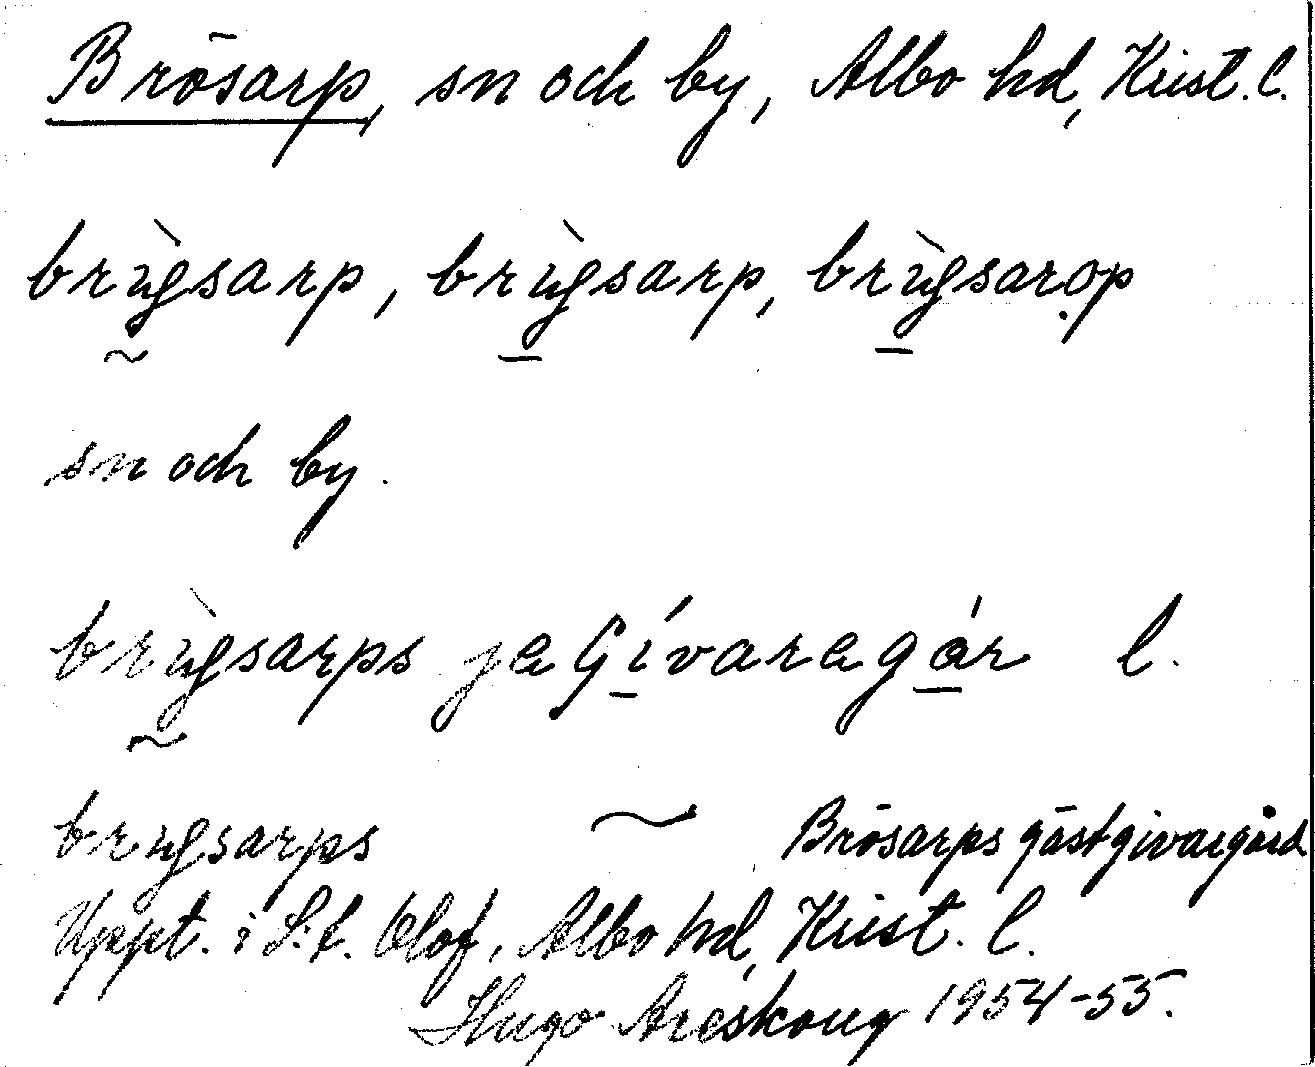 Brösarp, sn och by, Albo hd, Krist. l.
brìgsarp, brìgsarp, brìgsarọp
sn och by.
brìgsarps jaGívaragár l.
brigsarps ~ Brösarps gästgivargård
Uppt. i S:t Olof, Albo hd, Krist. l.
Hugo Areskoug 1954-55.